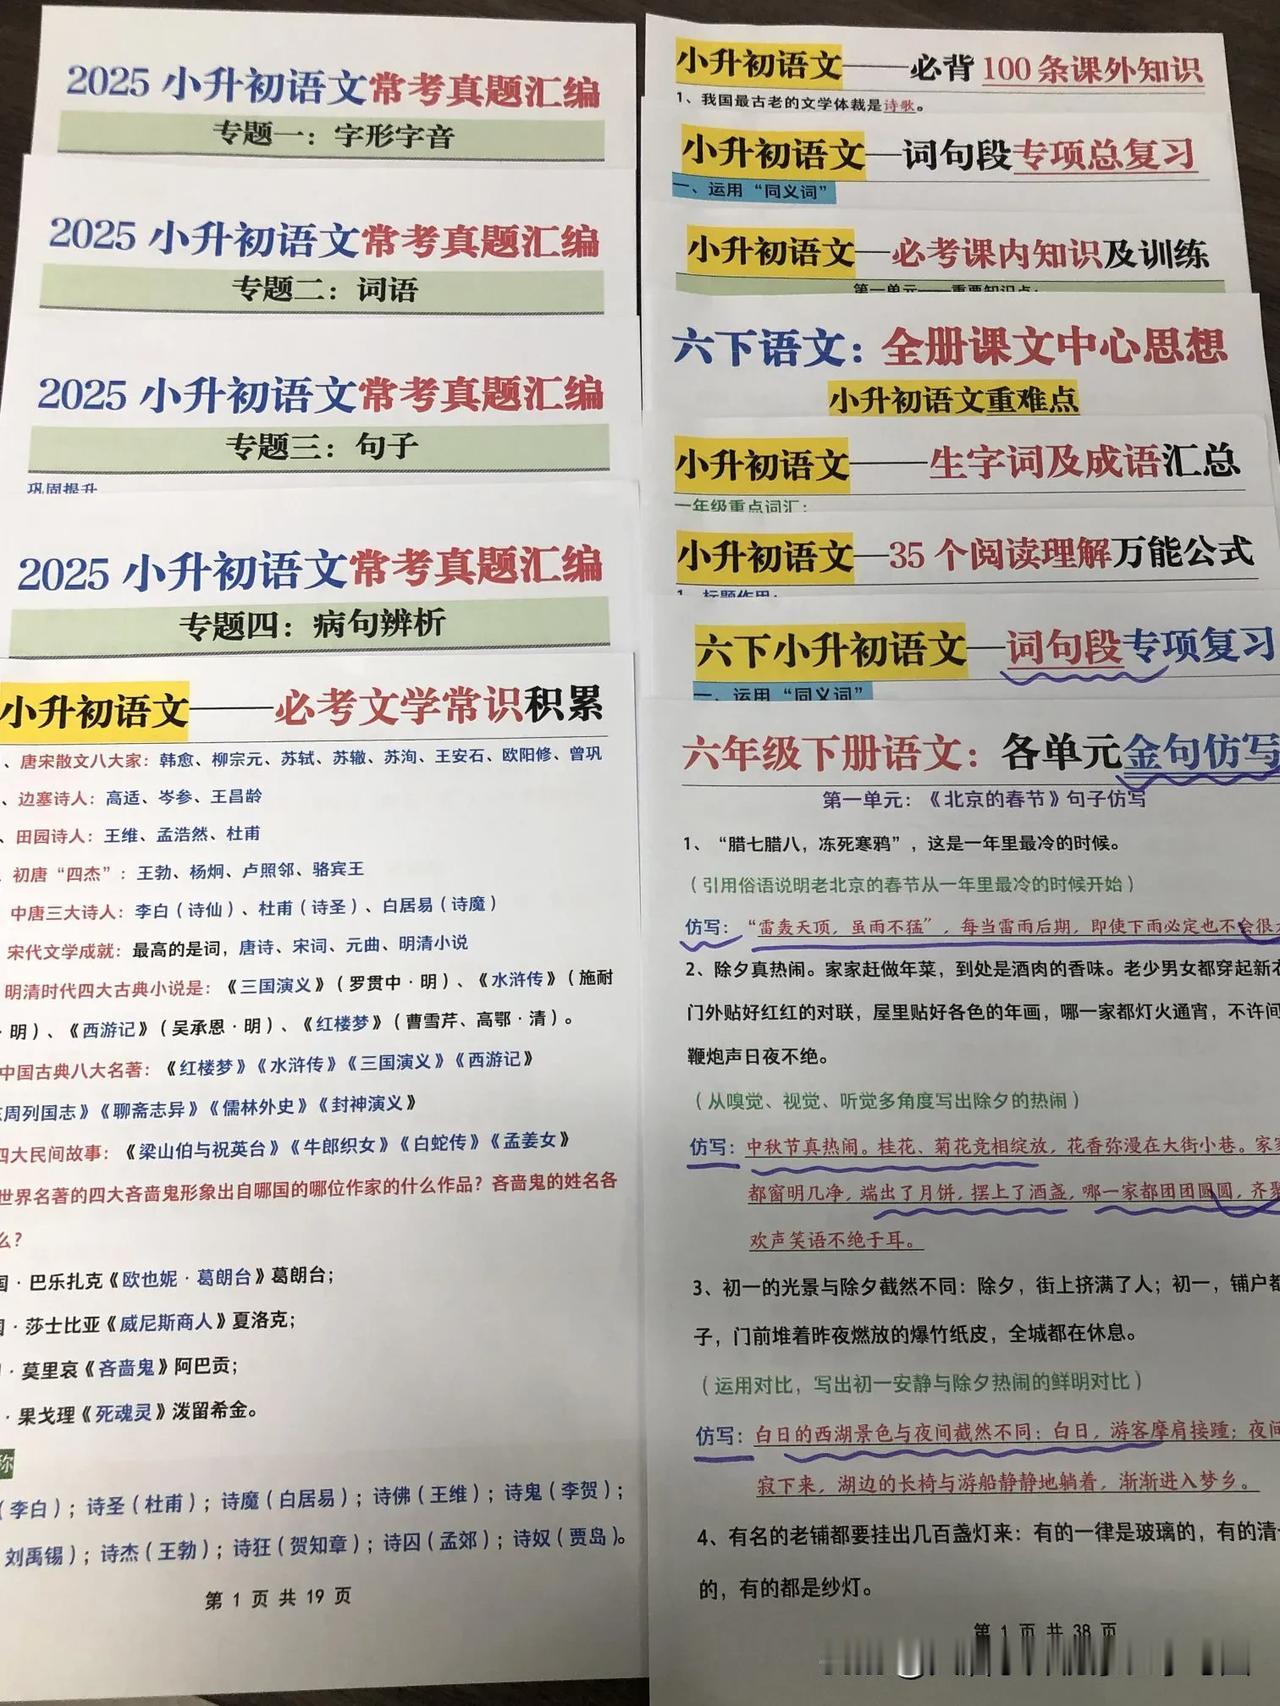 2025 小升初语文常考真题汇编
专题一：字形字音
2025 小升初语文常考真题汇编
专题二：词语
2025 小升初语文常考真题汇编
专题三：句子
巩固提升
2025 小升初语文常考真题汇编
专题四：病句辨析
小升初语文——必考文学常识积累
、唐宋散文八大家：韩愈、柳宗元、苏轼、苏辙、苏洵、王安石、欧阳修、曾巩
、边塞诗人：高适、岑参、王昌龄
、田园诗人：王维、孟浩然、杜甫
初唐“四杰”：王勃、杨炯、卢照邻、骆宾王
中唐三大诗人：李白（诗仙）、杜甫（诗圣）、白居易（诗魔）
宋代文学成就：最高的是词，唐诗、宋词、元曲、明清小说
明清时代四大古典小说是：《三国演义》（罗贯中·明）、《水浒传》（施耐
·明）、《西游记》（吴承恩·明）、《红楼梦》（曹雪芹、高鄂·清）。
中国古典八大名著：《红楼梦》《水浒传》《三国演义》《西游记》
周列国志》《聊斋志异》《儒林外史》《封神演义》
四大民间故事：《梁山伯与祝英台》《牛郎织女》《白蛇传》《孟姜女》
世界名著的四大吝啬鬼形象出自哪国的哪位作家的什么作品？吝啬鬼的姓名各
么？
国·巴乐扎克《欧也妮·葛朗台》葛朗台；
·莎士比亚《威尼斯商人》夏洛克；
·莫里哀《吝啬鬼》阿巴贡；
·果戈理《死魂灵》泼留希金。
称
（李白）；诗圣（杜甫）；诗魔（白居易）；诗佛（王维）；诗鬼（李贺）；
刘禹锡）；诗杰（王勃）；诗狂（贺知章）；诗囚（孟郊）；诗奴（贾岛）。
第 1 页 共 19 页
小升初语文——必背 100 条课外知识
1、我国最古老的文学体裁是诗歌。
小升初语文—词句段专项总复习
一、运用“同义词”
小升初语文—必考课内知识及训练
第一单元——重要知识点：
六下语文：全册课文中心思想
小升初语文重难点
小升初语文——生字词及成语汇总
一年级重点词汇：
小升初语文—35 个阅读理解万能公式
1、标题作用：
六下小升初语文—词句段专项复习
一、运用“同义词”
六年级下册语文：各单元金句仿写
第一单元：《北京的春节》句子仿写
1、“腊七腊八，冻死寒鸦”，这是一年里最冷的时候。
（引用俗语说明老北京的春节从一年里最冷的时候开始）
仿写：“雷轰天顶，虽雨不猛”，每当雷雨后期，即使下雨必定也不会很
2、除夕真热闹。家家赶做年菜，到处是酒肉的香味。老少男女都穿起新衣
门外贴好红红的对联，屋里贴好各色的年画，哪一家都灯火通宵，不许间
鞭炮声日夜不绝。
（从嗅觉、视觉、听觉多角度写出除夕的热闹）
仿写：中秋节真热闹。桂花、菊花竞相绽放，花香弥漫在大街小巷。家家
都窗明几净，端出了月饼，摆上了酒盏，哪一家都团团圆圆，齐聚
欢声笑语不绝于耳。
3、初一的光景与除夕截然不同：除夕，街上挤满了人；初一，铺户都
子，门前堆着昨夜燃放的爆竹纸皮，全城都在休息。
（运用对比，写出初一安静与除夕热闹的鲜明对比）
仿写：白日的西湖景色与夜间截然不同：白日，游客摩肩接踵；夜间
寂下来，湖边的长椅与游船静静地躺着，渐渐进入梦乡。
4、有名的老铺都要挂出几百盏灯来：有的一律是玻璃的，有的清一
的，有的都是纱灯。
第 1 页 共 38 页